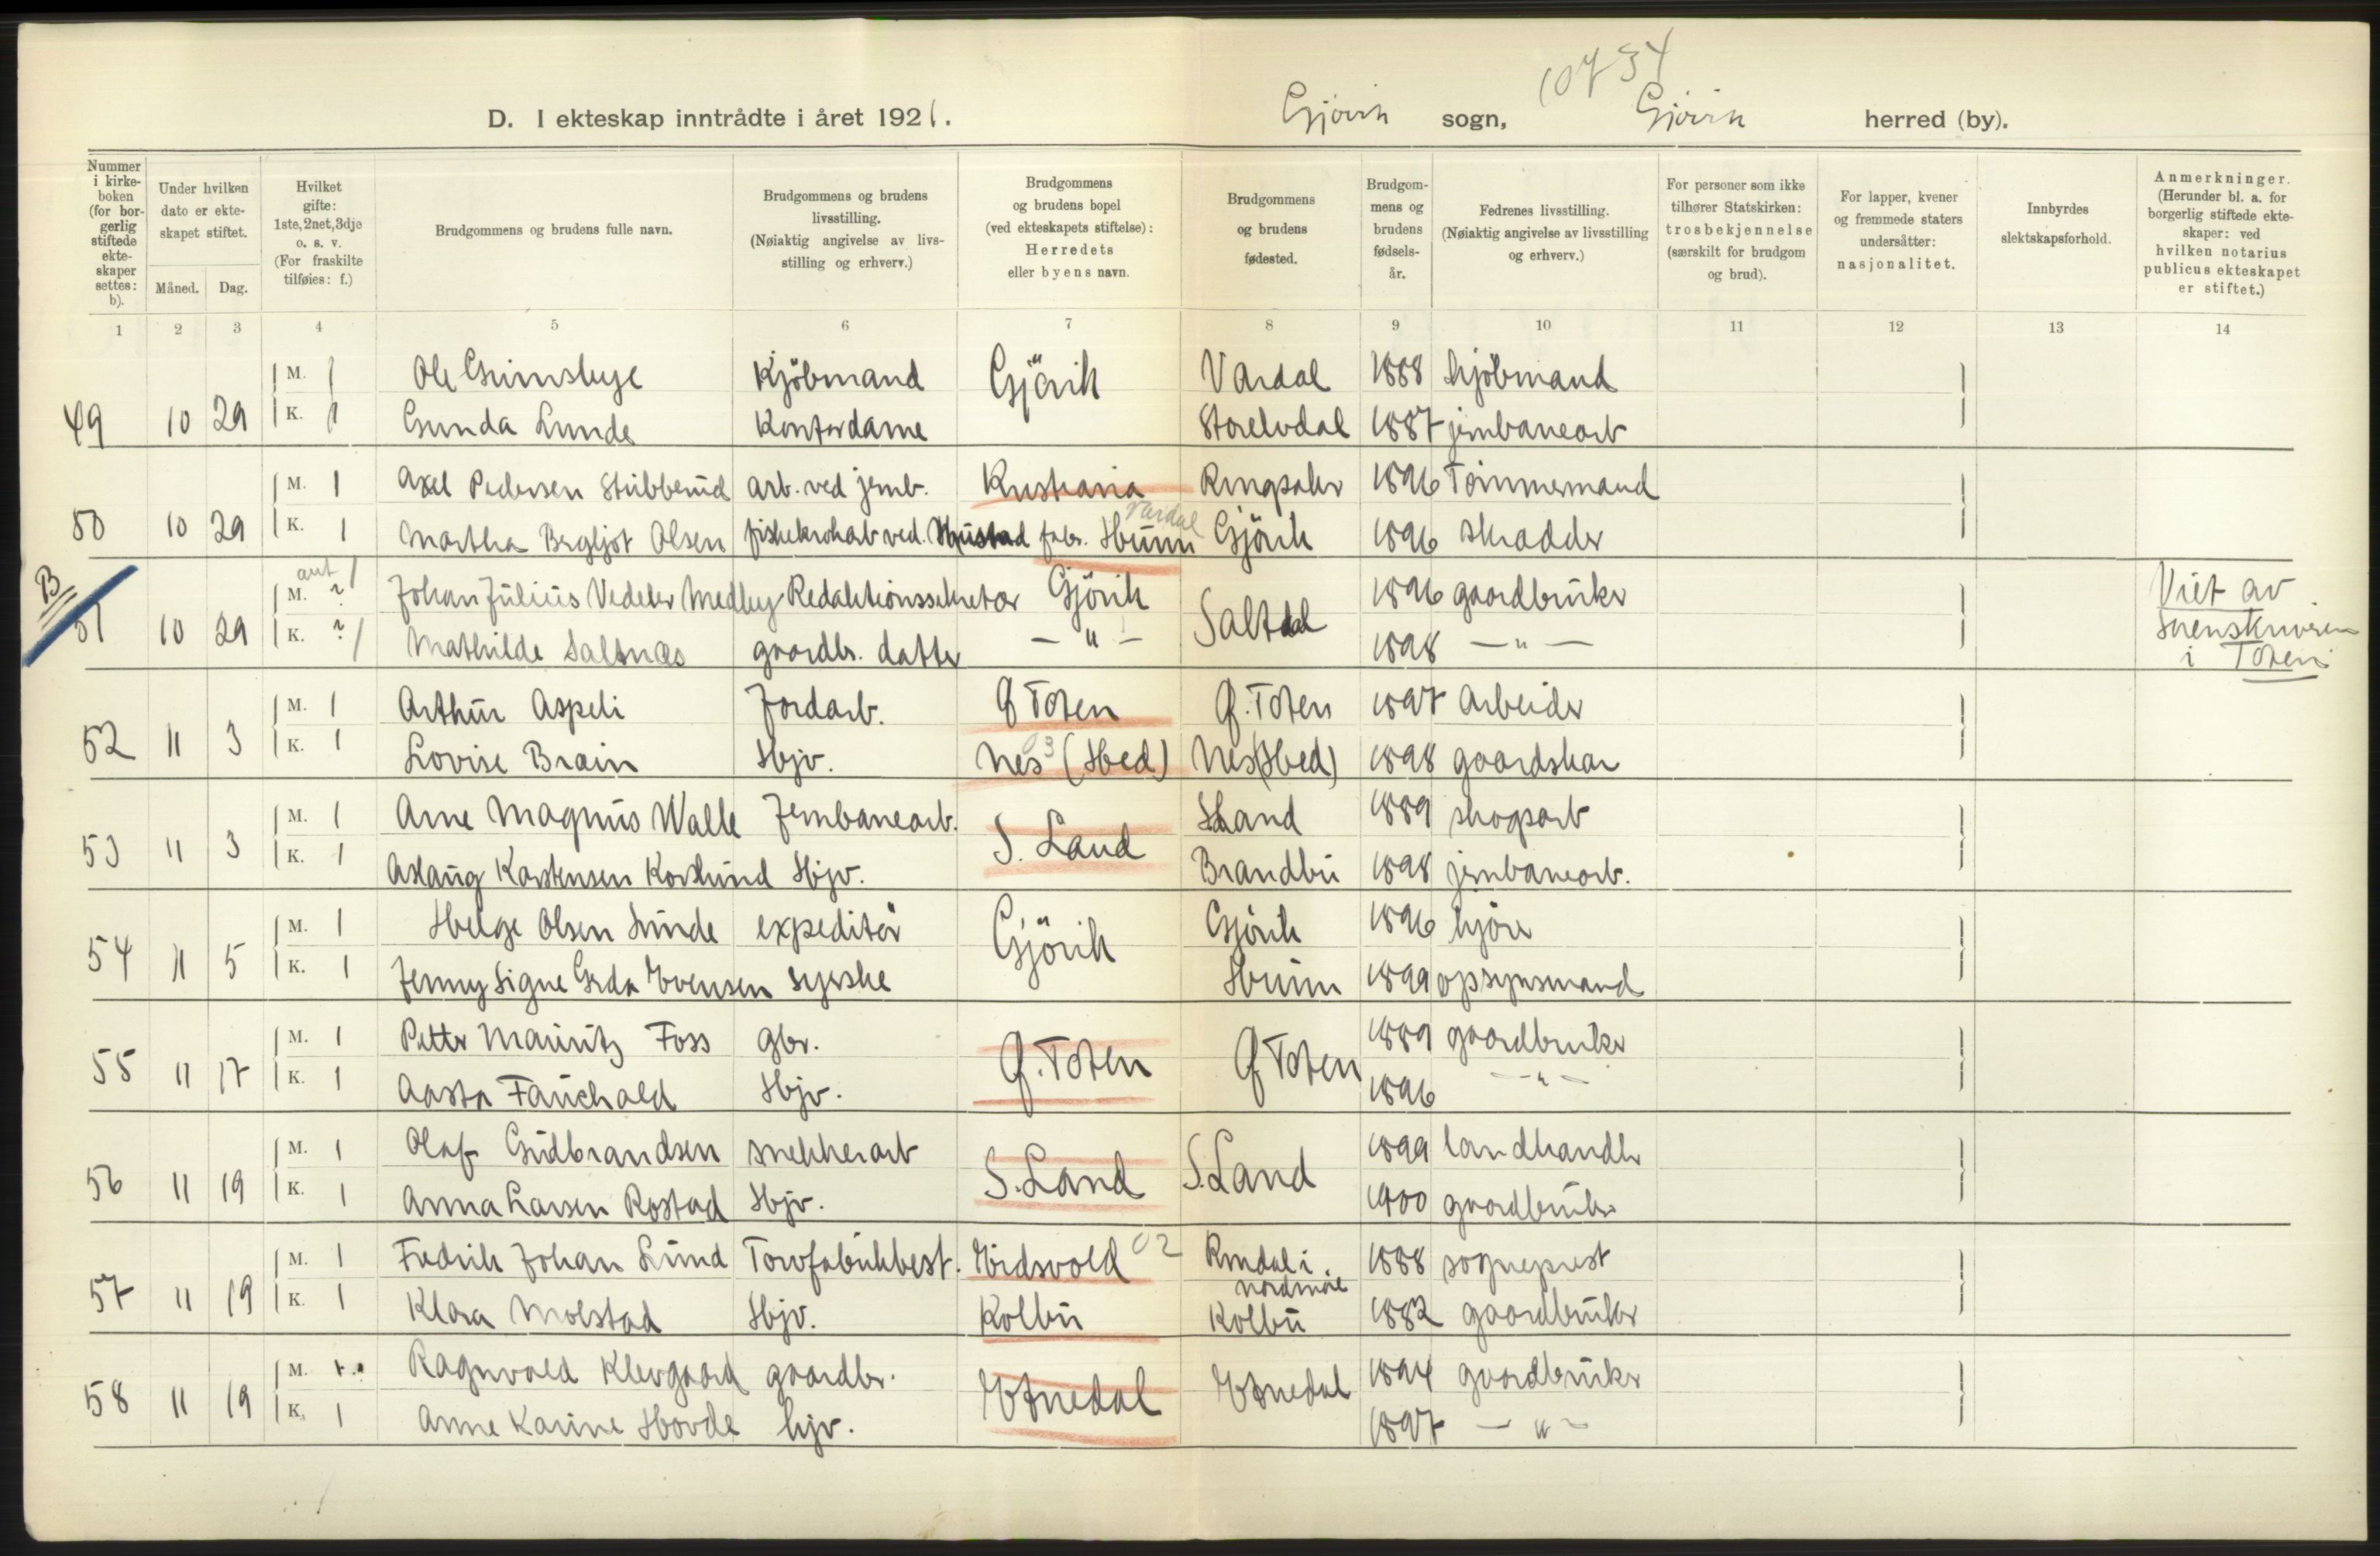 10734
D. I ekteskap inntrådte i året 1921. Gjövik sogn, Gjövik herred (by).
Nummer i kirke-boken (for bor-gerlig stiftede ekte-skaper settes: b).
Under hvilken dato er ekte-skapet stiftet.
Måned. Dag.
Hvilket gifte: 1ste, 2net, 3dje o. s. v. (For fraskilte tilføies: f.)
Brudgommens og brudens fulle navn.
Brudgommens og brudens livsstilling. (Nøiaktig angivelse av livs-stilling og erhverv.)
Brudgommens og brudens bopel (ved ekteskapets stiftelse): Herredets eller byens navn.
Brudgommens og brudens fødested.
Brudgom-mens og brudens fødsels-år.
Fedrenes livsstilling. (Nøiaktig angivelse av livsstilling og erhverv.)
For personer som ikke tilhører Statskirken: trosbekjennelse (særskilt for brudgom og brud).
For lapper, kvener og fremmede staters undersåtter: nasjonalitet.
Innbyrdes slektskapsforhold.
Anmerkninger. (Herunder bl. a. for borgerlig stiftede ekte-skaper: ved hvilken notarius publicus ekteskapet er stiftet.)
1 2 3 4 5 6 7 8 9 10 11 12 13 14
M. 1 Ole Grimsbye Kjöbmand Gjövik Vardal 1888 kjöbmand
49 10 29 K. 1 Gunda Lunde Kontordame Storelvdal 1887 jernbanearb
M. 1 Axel Pedersen Stubberud arb. ved jernb. Kristiania Ringsaker 1896 Tömmermand
50 10 29 K. 1 Martha Bergljot Olsen fiskekrokarb ved. Mustad fabr. Hunn Vardal Gjövik 1896 skradder
B
ant 1
M. ? Johan Julius Vedeler Medbey Redaktionssekretær Gjövik Saltdal 1896 gaardbruker Viet av
51 10 29 K. ? 1 Mathilde Saltnæs gaardbr. datter — " — 1898 — " — Sorenskriveren
i Toten
M. 1 Arthur Aspeli Jordarb. Ø Toten Ø. Toten 1897 Arbeider
52 11 3 K. 1 Lovise Brain Hjv. Nes 03 (Hed) Nes (Hed) 1898 gaardskar
M. 1 Arne Magnus Walle Jernbanearb. S. Land S Land 1889 skogsarb
53 11 3 K. 1 Aslaug Karstensen Korslund Hjv. Brandbu 1898 jernbanearb.
M. 1 Helge Olsen Lunde expeditör Gjövik Gjövik 1896 kjörer
54 11 5 K. 1 Jenny Signe Gerda Evensen syerske Hunn 1899 opsynsmand
M. 1 Petter Mauritz Foss gbr. Ø. Toten Ø Toten 1889 gaardbruker
55 11 17 K. 1 Aasta Fauchald Hjv. 1896 — " —
M. 1 Olaf Gudbrandsen snekkerarb S. Land S. Land 1899 landhandler
56 11 19 K. 1 Anna Larsen Rostad Hjv. 1900 gaardbruker
M. 1 Fredrik Johan Lund Torvfabrikbest. Eidsvold 02 Rindal i Nordmöre 1888 sogneprest
57 11 19 K. 1 Klara Molstad Hjv. Kolbu Kolbu 1882 gaardbruker
M. Ragnvald Klevgaard gaardbr. Etnedal Etnedal 1894 gaardbruker
58 11 19 K. 1 Anne Karine Hovde hjv. 1897 — " —